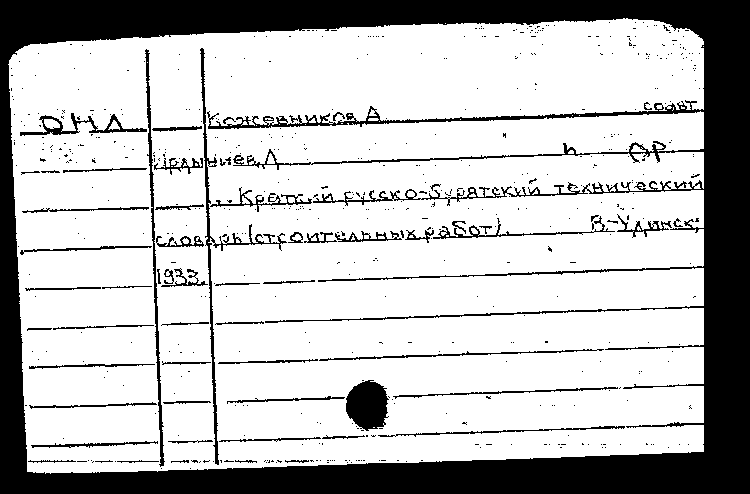 ОНЛ Кожевников, А соавт.
Ардыниев, Л
... Краткий русско-бурятский технический
словарь (строительных работ). В.-Удинск;
1933.